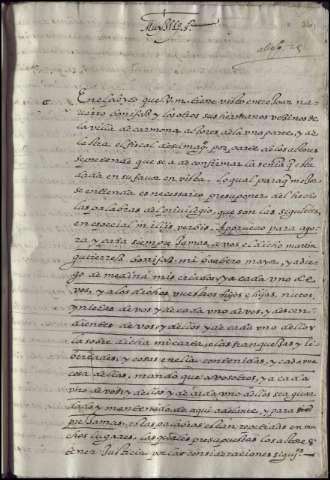 Muy Ill.es S.es
En el pleyto que V. m. tiene visto entre Juan na
uarro bonifaz y los otros sus hermanos vezinos de
la villa de carmona actores de la una parte, y de
la otra el fiscal de su mag.
se pretende que se a de confirmar la sentençia
dada en su fauor en vista. Lo qual para que mejor
se entienda es necesario presuponer del hecho
las palabras del priuilegio, que son las siguientes,
en especial in illis verbis. Aprueuo para ago
ra y para siempre Jamas, a vos el dicho martin
gutierrez bonifaz mi barbero mayor, y a die
go de medina mis criados y a cada uno de
vos, y a los dichos vuestros hijos e hijas, nietos,
y nietas de vos y de cada uno de vos, y a los desçen
dientes de vos y dellos y de cada uno dellos
la sobre dicha mi carta, e las franquezas y li
bertades, y cosas en ella contenidas, y cada una
cosa dellas, mando que a vosotros, y a cada
uno de vos y dellos y a cada uno dellos sea guar
dado y mantenido de aqui adelante, y para siem
pre Jamas, estas palabras estan repetidas en mu
chos lugares, las quales presupuestas los actores
tener Justicia por las consideraciones sigui.es